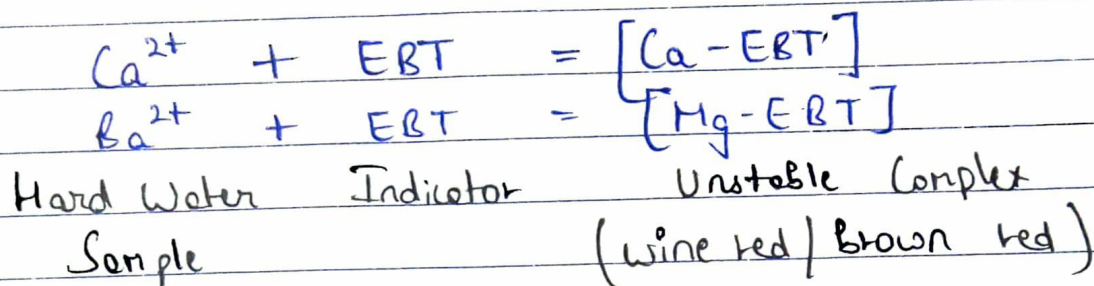 Ca²⁺ + EBT = [Ca-EBT]
Ba²⁺ + EBT = [Mg-EBT]
Hard Water Indicator Unstable Complex
Sample (wine red | Brown red)